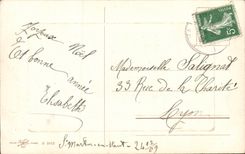 Joyeux Noël
& Et bonne année
Elisabeth
Mademoiselle Salignat
33 Rue de la Charité
Lyon
St Martin en Haut 24